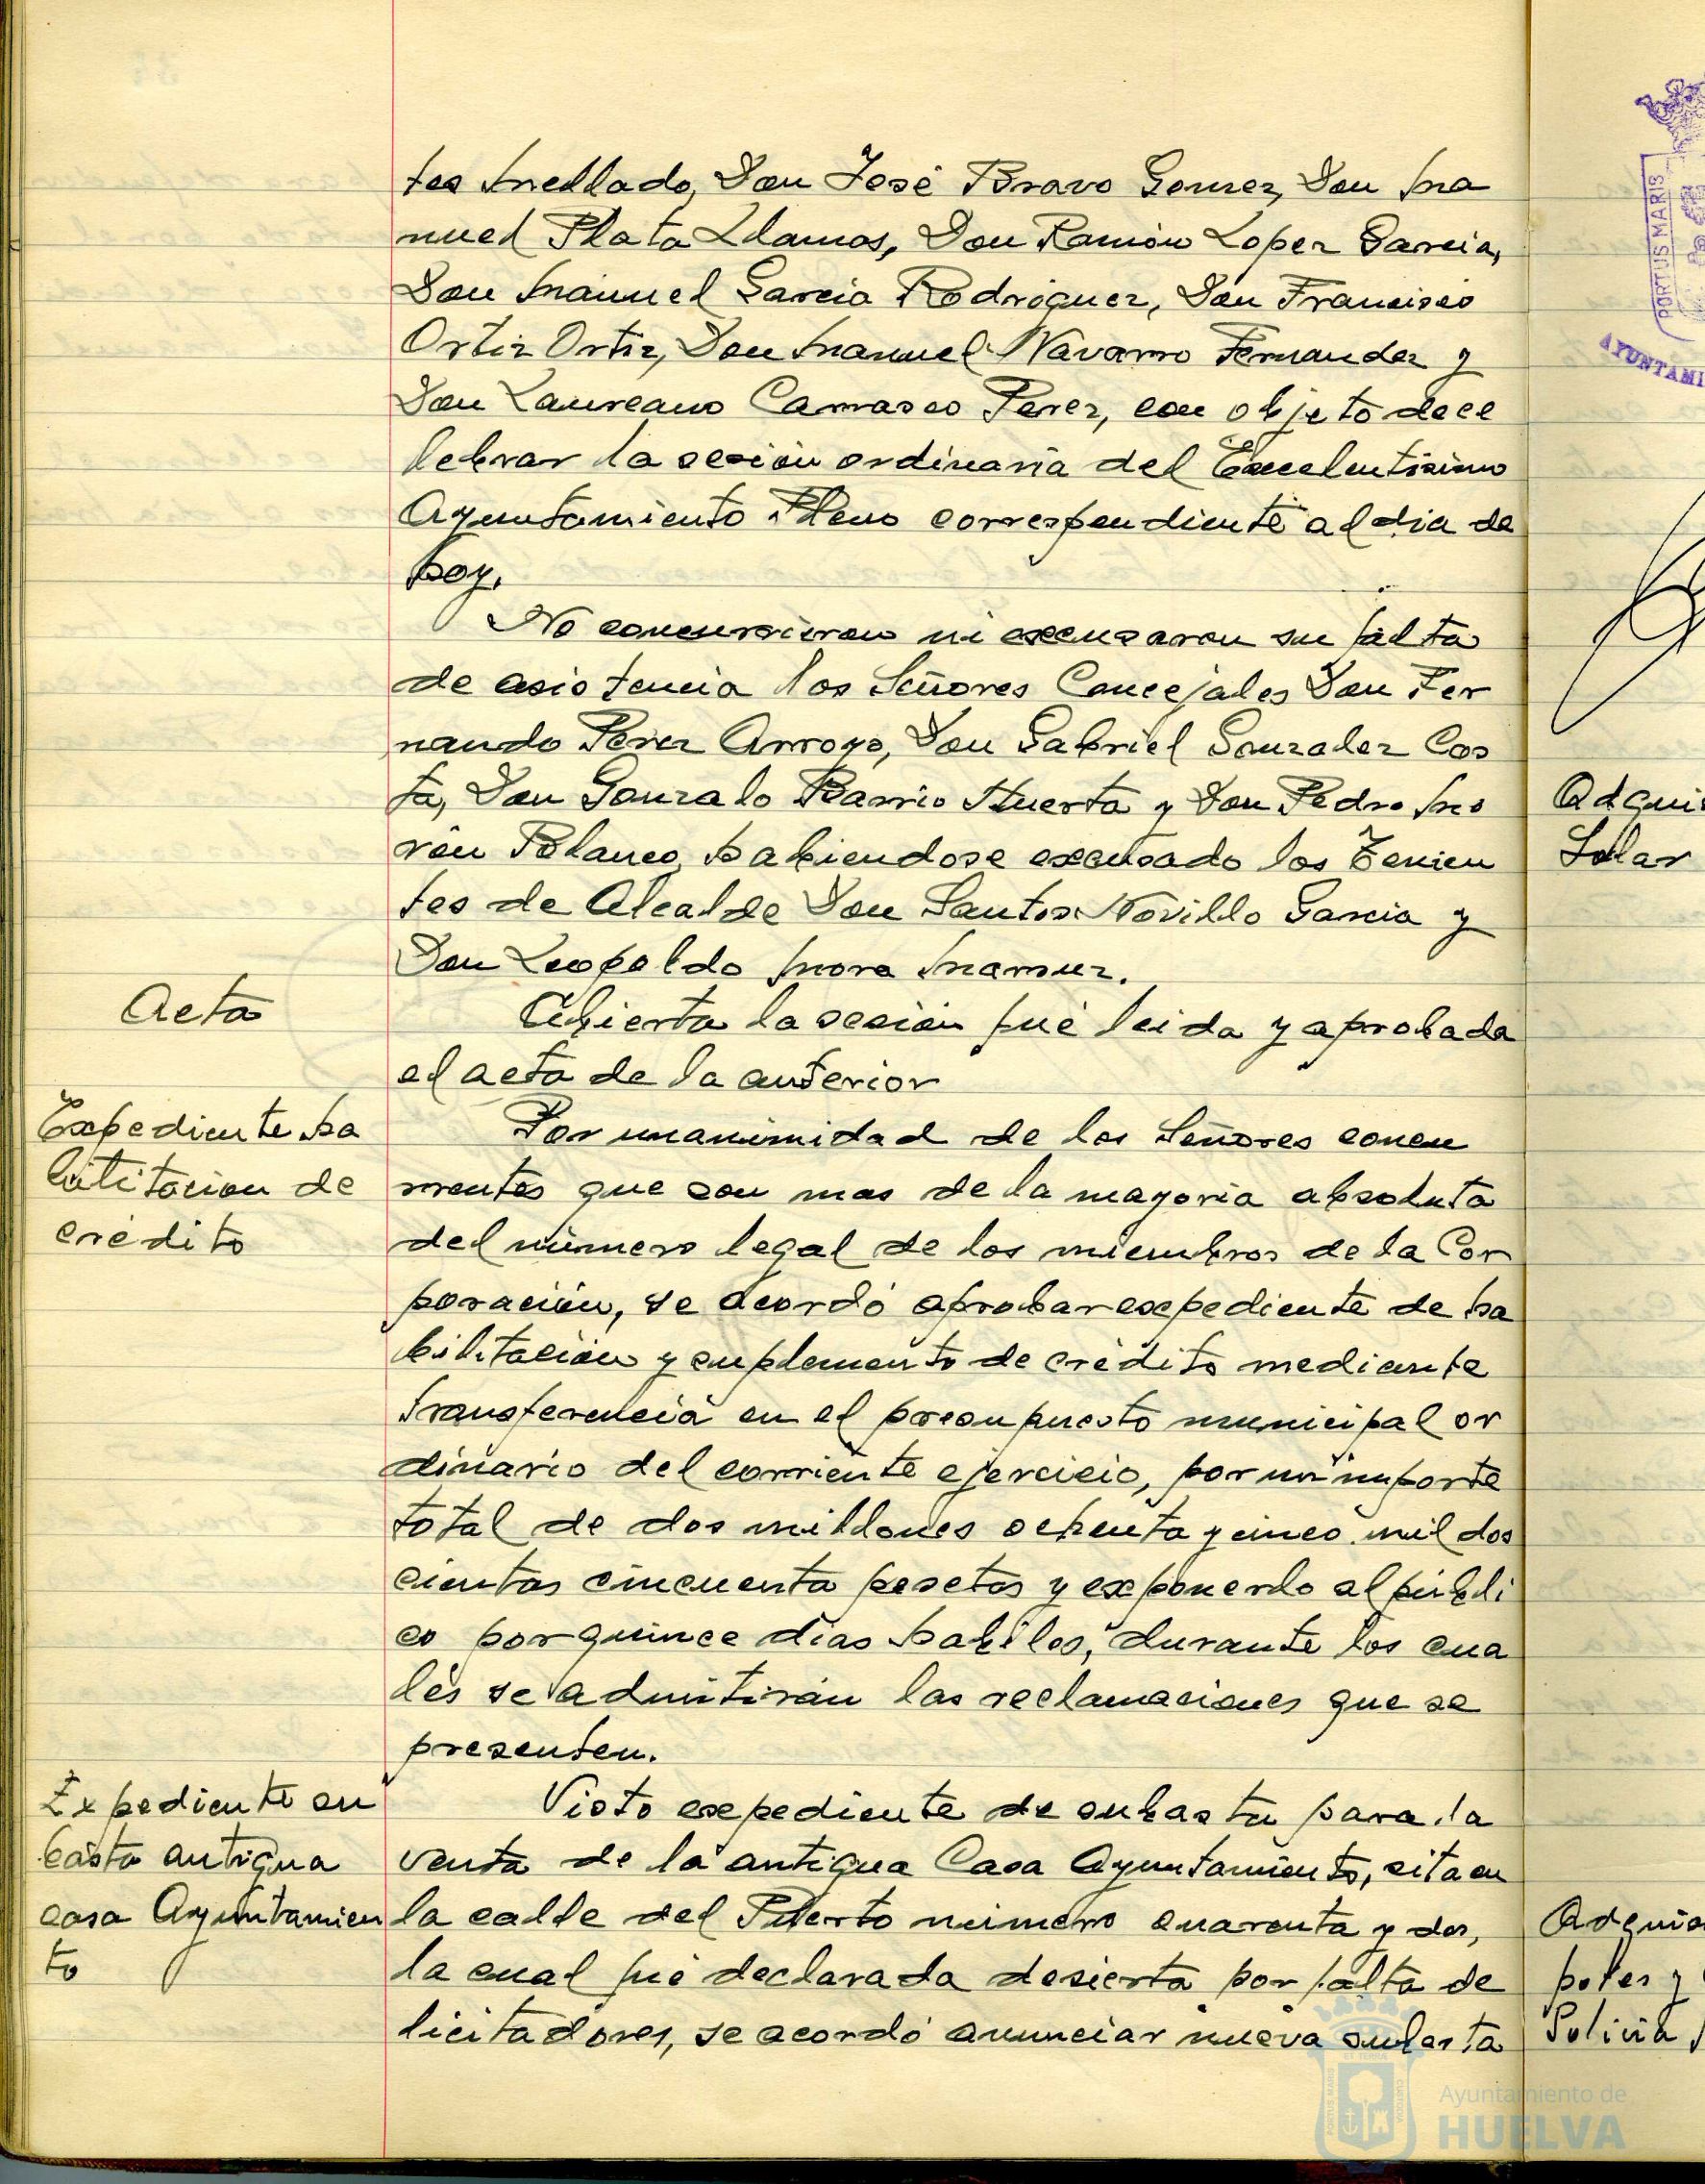 tes Mellado, Don José Bravo Gomez, Don Ma
nuel Plata Llamas, Don Ramón Lopez Garcia,
Don Manuel Garcia Rodriguez, Don Francisco
Ortiz Ortiz, Don Manuel Navarro Fernandez y
Don Laureano Carrasco Perez, con objeto de ce
lebrar la sesión ordinaria del Excelentisimo
Ayuntamiento Pleno correspondiente al dia de
hoy.
No concurrieron ni excusaron su falta
de asistencia los Señores Concejales Don Fer
nando Perez Arroyo, Don Gabriel Gonzalez Cos
ta, Don Gonzalo Barrio Huerta y Don Pedro Mo
rón Polanco, habiendose excusado los Tenien
tes de Alcalde Don Santos Novillo Garcia y
Don Leopoldo Mora
Acta
Abierta la sesión fué leida y aprobada
el acta de la anterior
Expediente ha
bilitacion de
crédito
Por unanimidad de los Señores concu
rrentes que son mas de la mayoria absoluta
del número legal de los miembros de la Cor
poración, se acordó aprobar expediente de ha
bilitación y suplemento de crédito mediante
transferencia en el presupuesto municipal or
dinario del corriente ejercicio, por un importe
total de dos millones ochenta y cinco mil dos
cientas cincuenta pesetas y exponerlo al públi
co por quince dias habiles, durante los cua
les se admitirán las reclamaciones que se
presenten.
Expediente su
basta antigua
casa Ayuntamien
to
Visto expediente de subasta para la
venta de la antigua Casa Ayuntamiento, sita en
la calle del Puerto número cuarenta y dos,
la cual fué declarada desierta por falta de
licitadores, se acordó anunciar nueva subasta
PORTUS MARIS
AYUNTAMI
Adqui
Solar
Adquis
potes y
Policia
Ayuntamiento de
HUELVA